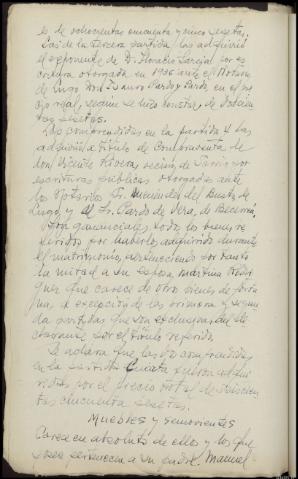 es de ochocientas cincuenta y cinco pesetas.
Las de la tercera partida las adquirió
el exponente de D. Horacio por es
critura otorgada en 1906 ante el Notario
de Lugo Don Pardo y Pardo, en el
según se hizo constar, de
tas pesetas.
Las comprendidas en la partida 4 las
adquirió a título de Compraventa de
don Vicente Rivera, vecino de por
escrituras públicas otorgadas ante
los Notarios Sr. Menéndez del Busto de
Lugo, y el Sr. Pardo de Vera, de Becerreá,
Son gananciales todos los bienes re
feridos por haberlos adquirido durante
el matrimonio, perteneciendo por tanto
la mitad a su esposa Martina Rodrí
guez que carece de otros bienes de fortu
na, a excepción de las primera y segun
da partidas que son exclusivas del de
clarante por el título referido.
Se aclara que las comprendidas
en la partida Cuarta fueron adqui
ridas por el precio total de seiscien
tas cincuenta pesetas.
Muebles y semovientes
Carece en absoluto de ellos y los que
posee pertenecen a su padre, Manuel